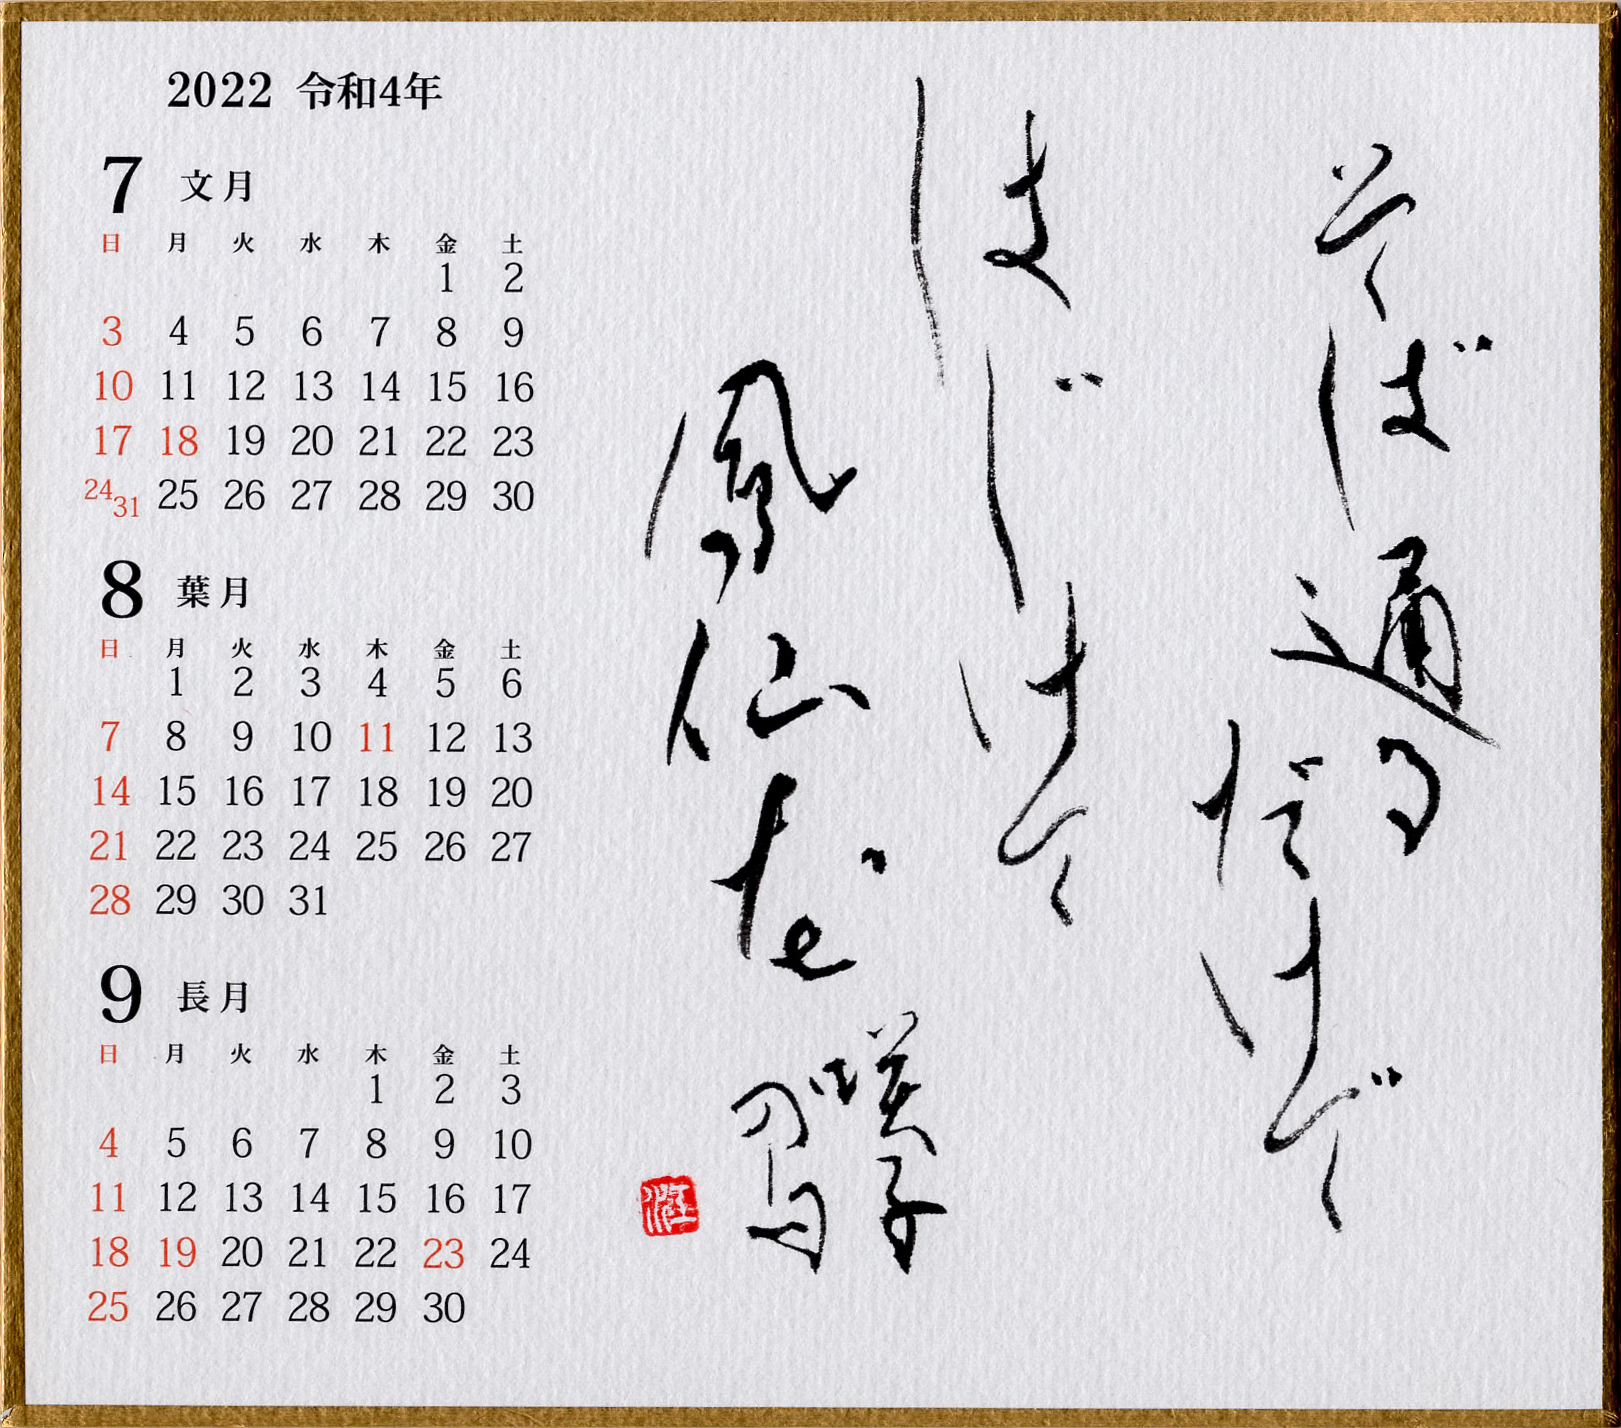 2022 令和4年
7 文月
日 月 火 水 木 金 土
1 2
3 4 5 6 7 8 9
10 11 12 13 14 15 16
17 18 19 20 21 22 23
24 31 25 26 27 28 29 30
8 葉月
日 月 火 水 木 金 土
1 2 3 4 5 6
7 8 9 10 11 12 13
14 15 16 17 18 19 20
21 22 23 24 25 26 27
28 29 30 31
9 長月
日 月 火 水 木 金 土
1 2 3
4 5 6 7 8 9 10
11 12 13 14 15 16 17
18 19 20 21 22 23 24
25 26 27 28 29 30
そば通る
だけで
はじけて
鳳仙花
咲子